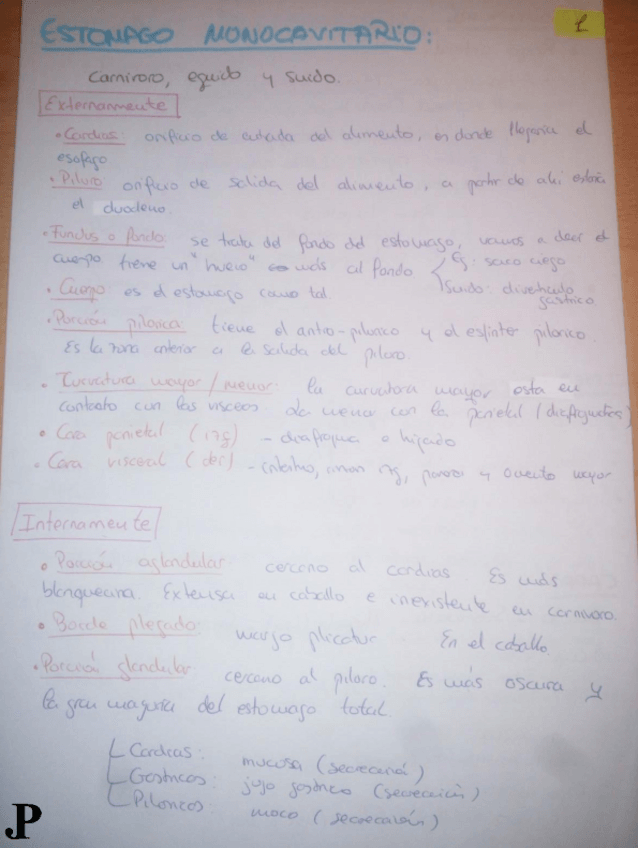 ESTOMAGO MONOCAVITARIO:
1
Carnivoro, equido y suido.
Externamente
• Cardias: orificio de entrada del alimento, en donde llegaria el
esofago.
• Piloro orificio de salida del alimento, a partir de ahi estaria
el duodeno.
• Fundus o fondo: se trata del fondo del estomago, vamos a decir el
cuerpo tiene un "hueco" más al fondo Eq: saco ciego
Suido: diverticulo
gastrico
• Cuerpo: es el estomago como tal.
• Porción pilorica: tiene el antro-pilorico y el esfinter pilorico.
Es la zona anterior a la salida del piloro.
• Curvatura mayor/menor: la curvatura mayor esta en
contacto con las visceras. La menor con la parietal (diafragmatica)
• Cara parietal (izq) - diafragma e higado
• Cara visceral (der) - intestino, riñon izq, pancreas y omento mayor
Internamente
• Porción aglandular: cercano al cardias. Es más
blanquecina. Extensa en caballo e inexistente en carnivoro.
• Borde plegado: margo plicatus. En el caballo.
• Porción glandular: cercano al piloro. Es más oscura y
la gran mayoria del estomago total.
Cardias: mucosa (secreción)
Gastricos: jugo gastrico (secreción)
Piloricos: moco (secreción)
JP